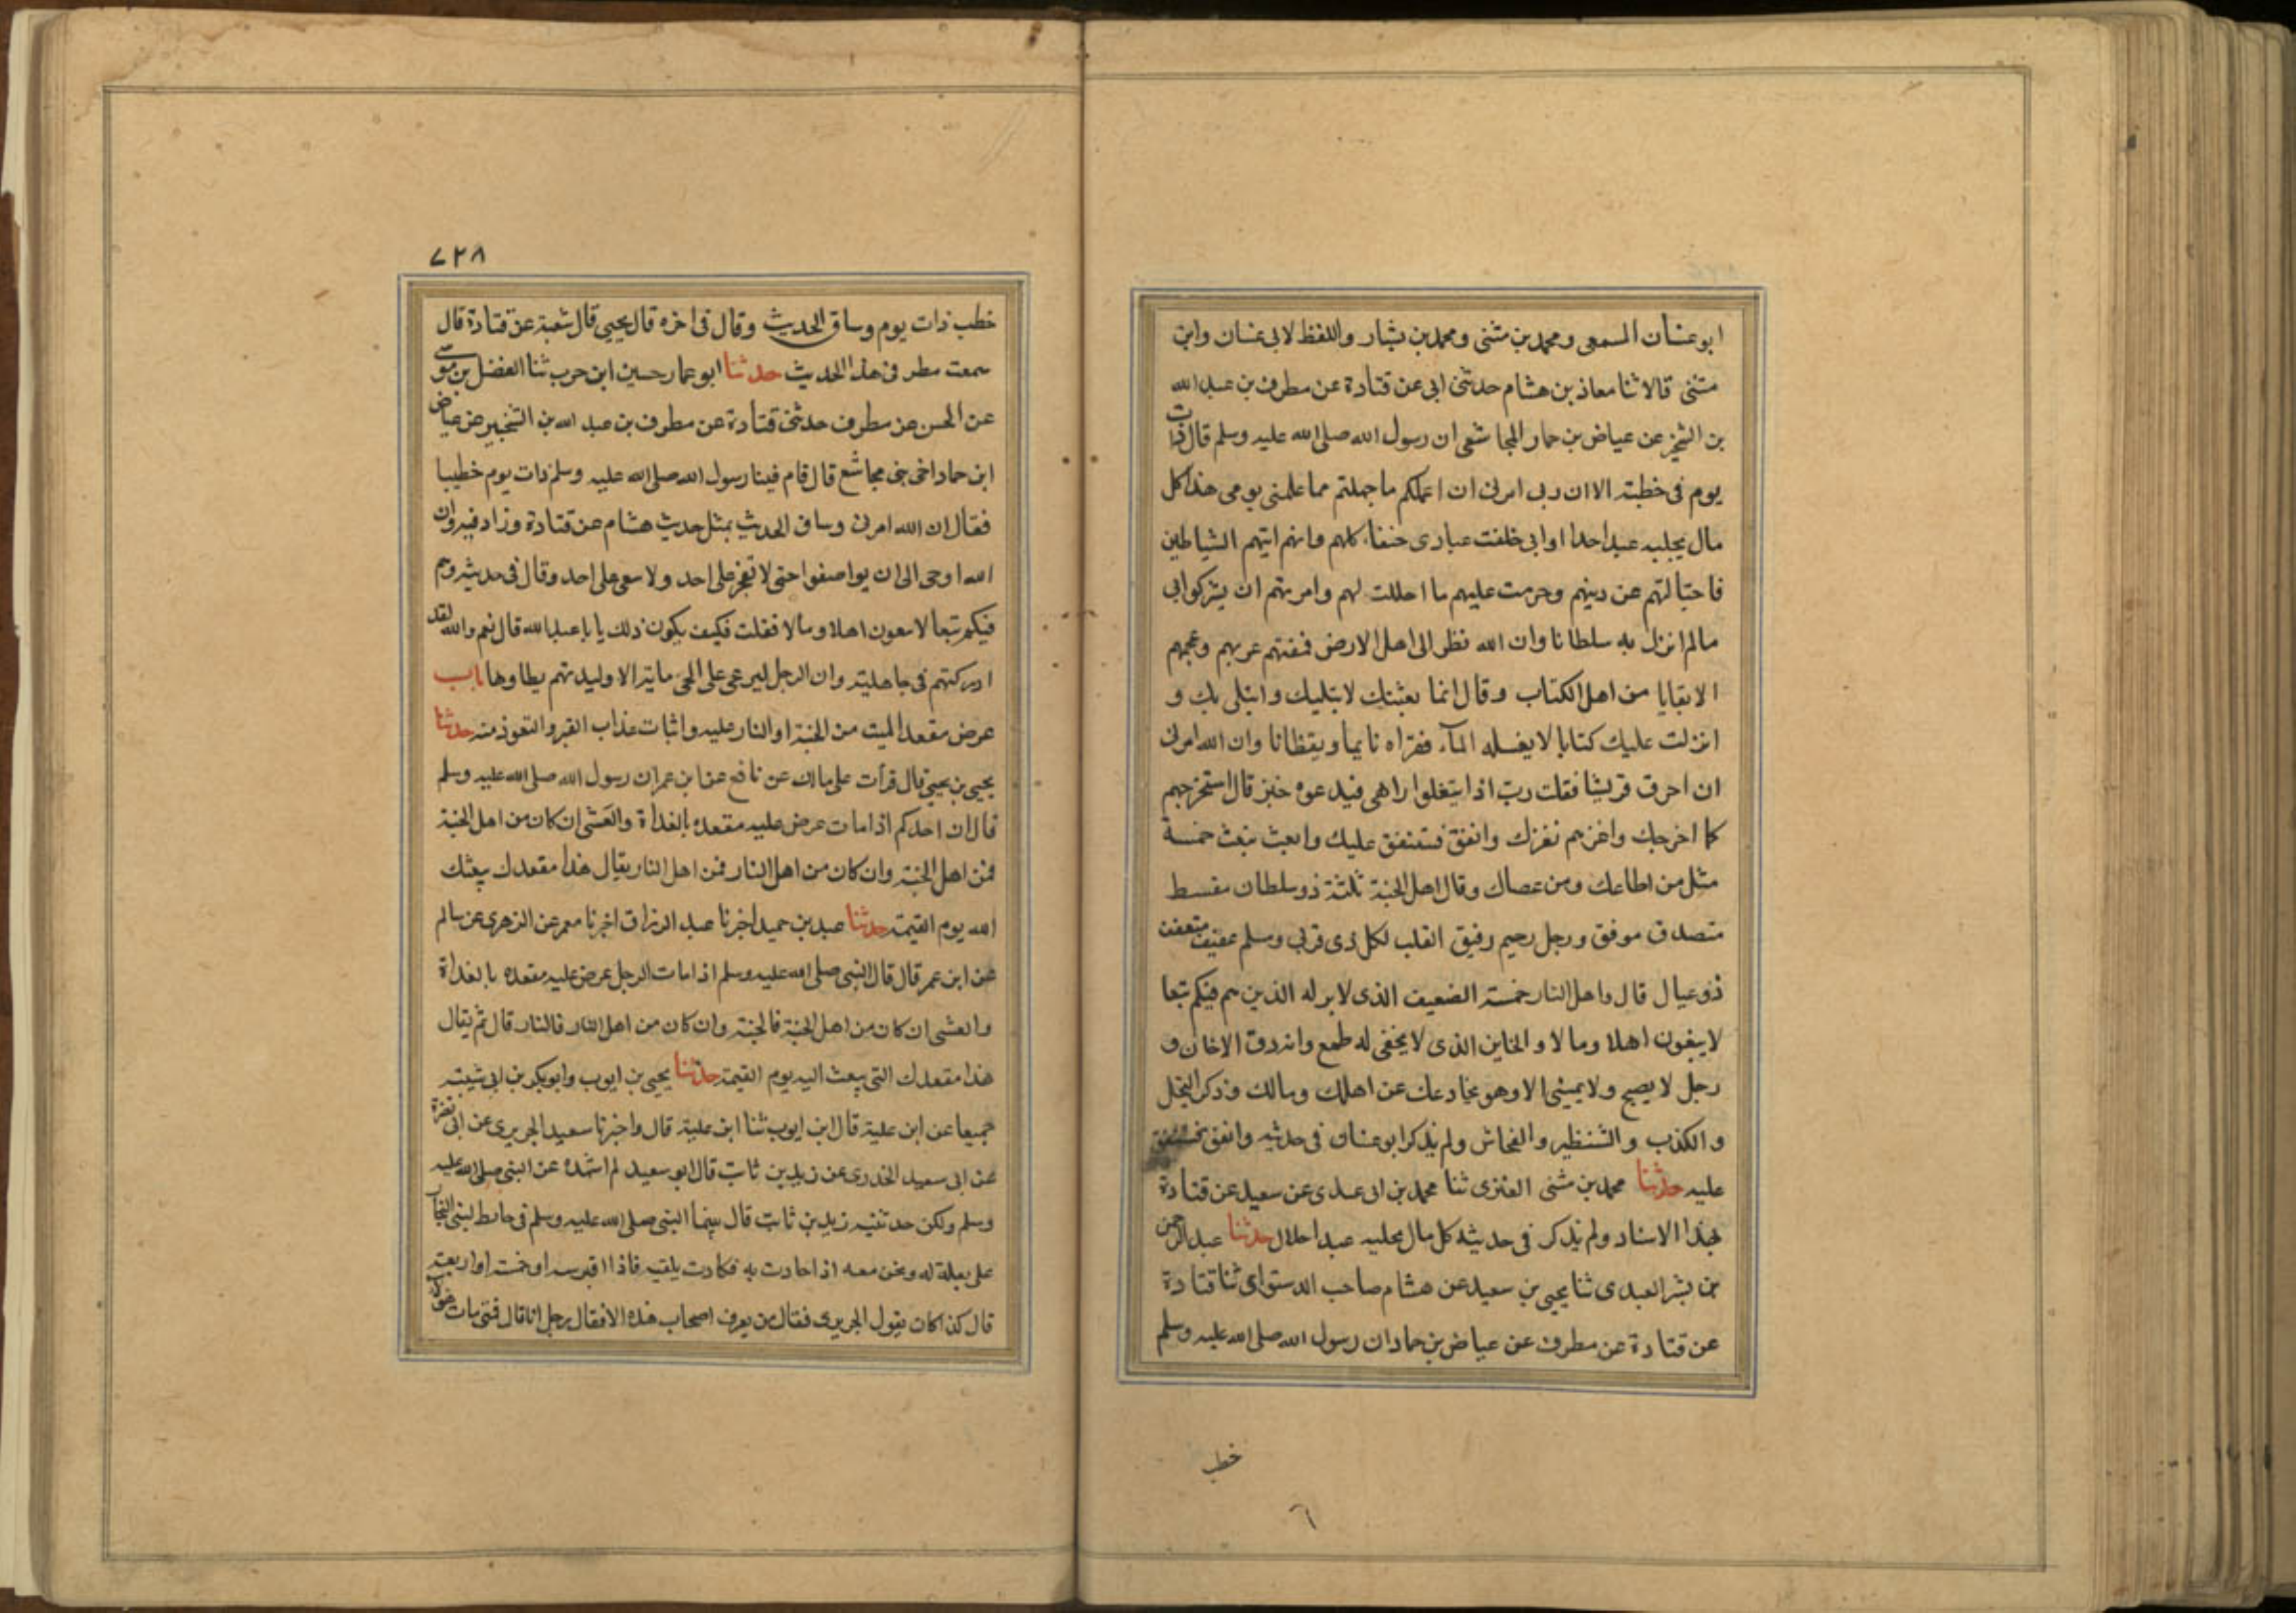 ابو غسان المسمعى ومحمد بن مثنى ومحمد بن بشار واللفظ لابى غسان وابن
مثنى قالا ثنا معاذ بن هشام حدثنى ابى عن قتادة عن مطرف بن عبد الله
بن الشخير عن عياض بن حمار المجاشعى ان رسول الله صلى الله عليه وسلم قال ذات
يوم فى خطبته الا ان ربى امرنى ان اعلمكم ما جهلتم مما علمنى يومى هذا كل
مال يجلبه عبدا حدا وانى خلقت عبادى حنفاء كلهم وانهم اتيهم الشياطين
فاحتبالتهم عن دينهم وحرمت عليهم ما احللت لهم وامرتهم ان يشركوا بى
مالم انزل به سلطانا وان الله نظر الى اهل الارض فمقتهم عربهم وعجمهم
الا بقايا من اهل الكتاب وقال انما بعثتك لابتليك وابتلى بك و
انزلت عليك كتابا لا يغسله المآء فقراه نايما ويقظانا وان الله امرنى
ان احرق قريشا فقلت رب اذا يثلغوا راسى فيدعوه خبز قال استخرجهم
كما اخرجك واغزهم نغزك وانفق فسننفق عليك وابعث نبعث خمسة
مثل من اطاعك ومن عصاك وقال اهل الجنة ثلثة ذو سلطان مقسط
متصدق موفق ورجل رحيم رفيق القلب لكل ذى قربى وسلم عفيف متعفف
ذو عيال قال واهل النار خمسة الضعيف الذى لا بر له الذين هم فيكم تبعا
لا يبغون اهلا ومالا والخاين الذى لا يخفى له طمع وان دق الا خان و
رجل لا يصبح ولا يمسى الا وهو يخادعك عن اهلك ومالك وذكر البخل
والكذب والشنظير والفحاش ولم يذكر ابو غسان فى حديثه وانفق فسننفق
عليه حدثنا محمد بن مثنى العنزى ثنا محمد بن ابى عدى عن سعيد عن قتادة
بهذا الاسناد ولم يذكر فى حديثه كل مال يجلبه عبدا حلال حدثنا عبد الرحمن
بن بشر العبدى ثنا يحيى بن سعيد عن هشام صاحب الدستواى ثنا قتادة
عن قتادة عن مطرف عن عياض بن حماد ان رسول الله صلى الله عليه وسلم
خطب
٦
٧٢٨
خطب ذات يوم وساق الحديث وقال فى اخره قال يحيى قال شعبة عن قتادة قال
سمعت مطرف فى هذا الحديث حدثنا ابو عمار حسين ابن حرب ثنا الفضل بن موسى
عن الحسن عن مطرف حدثنى قتادة عن مطرف بن عبد الله بن الشخير عن عياض
ابن حماد اخى بنى مجاشع قال قام فينا رسول الله صلى الله عليه وسلم ذات يوم خطيبا
فقال ان الله امرنى وساق الحديث بمثل حديث هشام عن قتادة وزاد فيه وان
الله اوحى الى ان يواضعوا حتى لا تفخر على احد ولا سعى على احد وقال فى حديثه وهم
فيكم تبعا لا سعون اهلا ومالا فقلت فكيف يكون ذلك يا با عبد الله قال نعم والله لقد
ادركتهم فى جاهلية وان الرجل ليرعى على الحى ما به الا وليدتهم يطاوها باب
عرض مقعد الميت من الجنة او النار عليه واثبات عذاب القبر والتعوذ منه حدثنا
يحيى بن يحيى قال قرأت على مالك عن نافع عن ابن عمر ان رسول الله صلى الله عليه وسلم
قال ان احدكم اذا مات عرض عليه مقعده بالغداة والعشى ان كان من اهل الجنة
فمن اهل الجنة وان كان من اهل النار فمن اهل النار يقال هذا مقعدك يبعثك
الله يوم القيمة حدثنا عبد بن حميد اخبرنا عبد الرزاق اخبرنا معمر عن الزهرى عن سالم
عن ابن عمر قال قال النبى صلى الله عليه وسلم اذا مات الرجل عرض عليه مقعده بالغداة
والعشى ان كان من اهل الجنة فالجنة وان كان من اهل النار فالنار قال ثم يقال
هذا مقعدك التى يبعث اليه يوم القيمة حدثنا يحيى بن ايوب وابو بكر بن ابى شيبة
جميعا عن ابن علية قال ابن ايوب ثنا ابن علية قال واخبرنا سعيد الجريرى عن ابى نضرة
عن ابى سعيد الخدرى عن زيد بن ثابت قال ابو سعيد لم اشهده عن النبى صلى الله عليه
وسلم ولكن حدثنيه زيد بن ثابت قال بينما النبى صلى الله عليه وسلم فى حايط لبنى النجار
على بغلة له ونحن معه اذا حادت به فكادت يلقيه فاذا اقبر سه او خمسة او اربعة
قال كذا كان يقول الجريرى فقال من يعرف اصحاب هذه الا فقال رجل انا قال فمتى مات هؤلاء